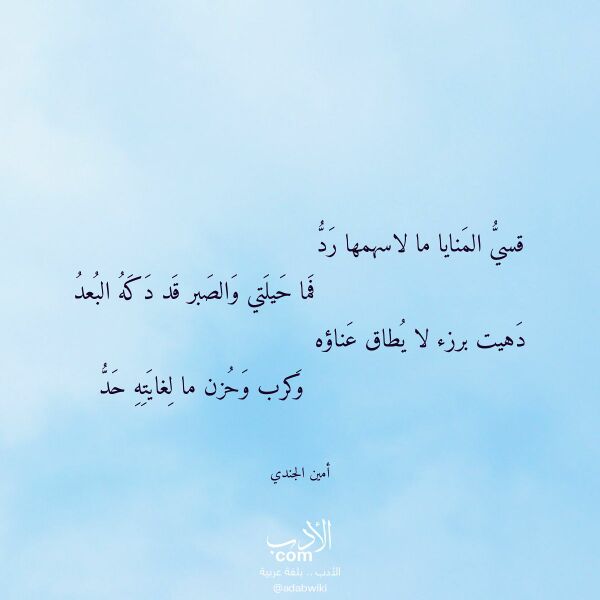 قسيُّ المَنايا ما لاسهمها رَدُّ
فَما حَيلَتي وَالصَبر قَد دَكَهُ البُعدُ
دَهيت برزء لا يُطاق عَناؤه
وَكَرب وَحُزن ما لِغايَتِهِ حَدُّ
أمين الجندي
الأدب
.com
الأدب .. بلغة عربية
@adabwiki